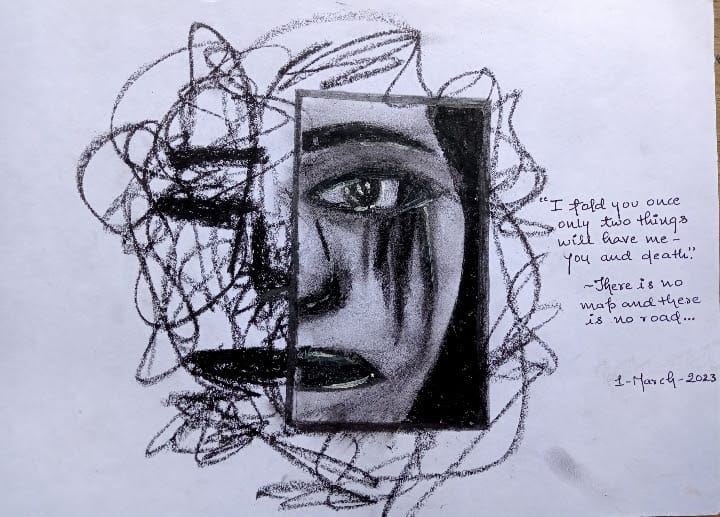 "I told you once
only two things
will have me –
you and death."
~There is no
map and there
is no road...
1-March-2023